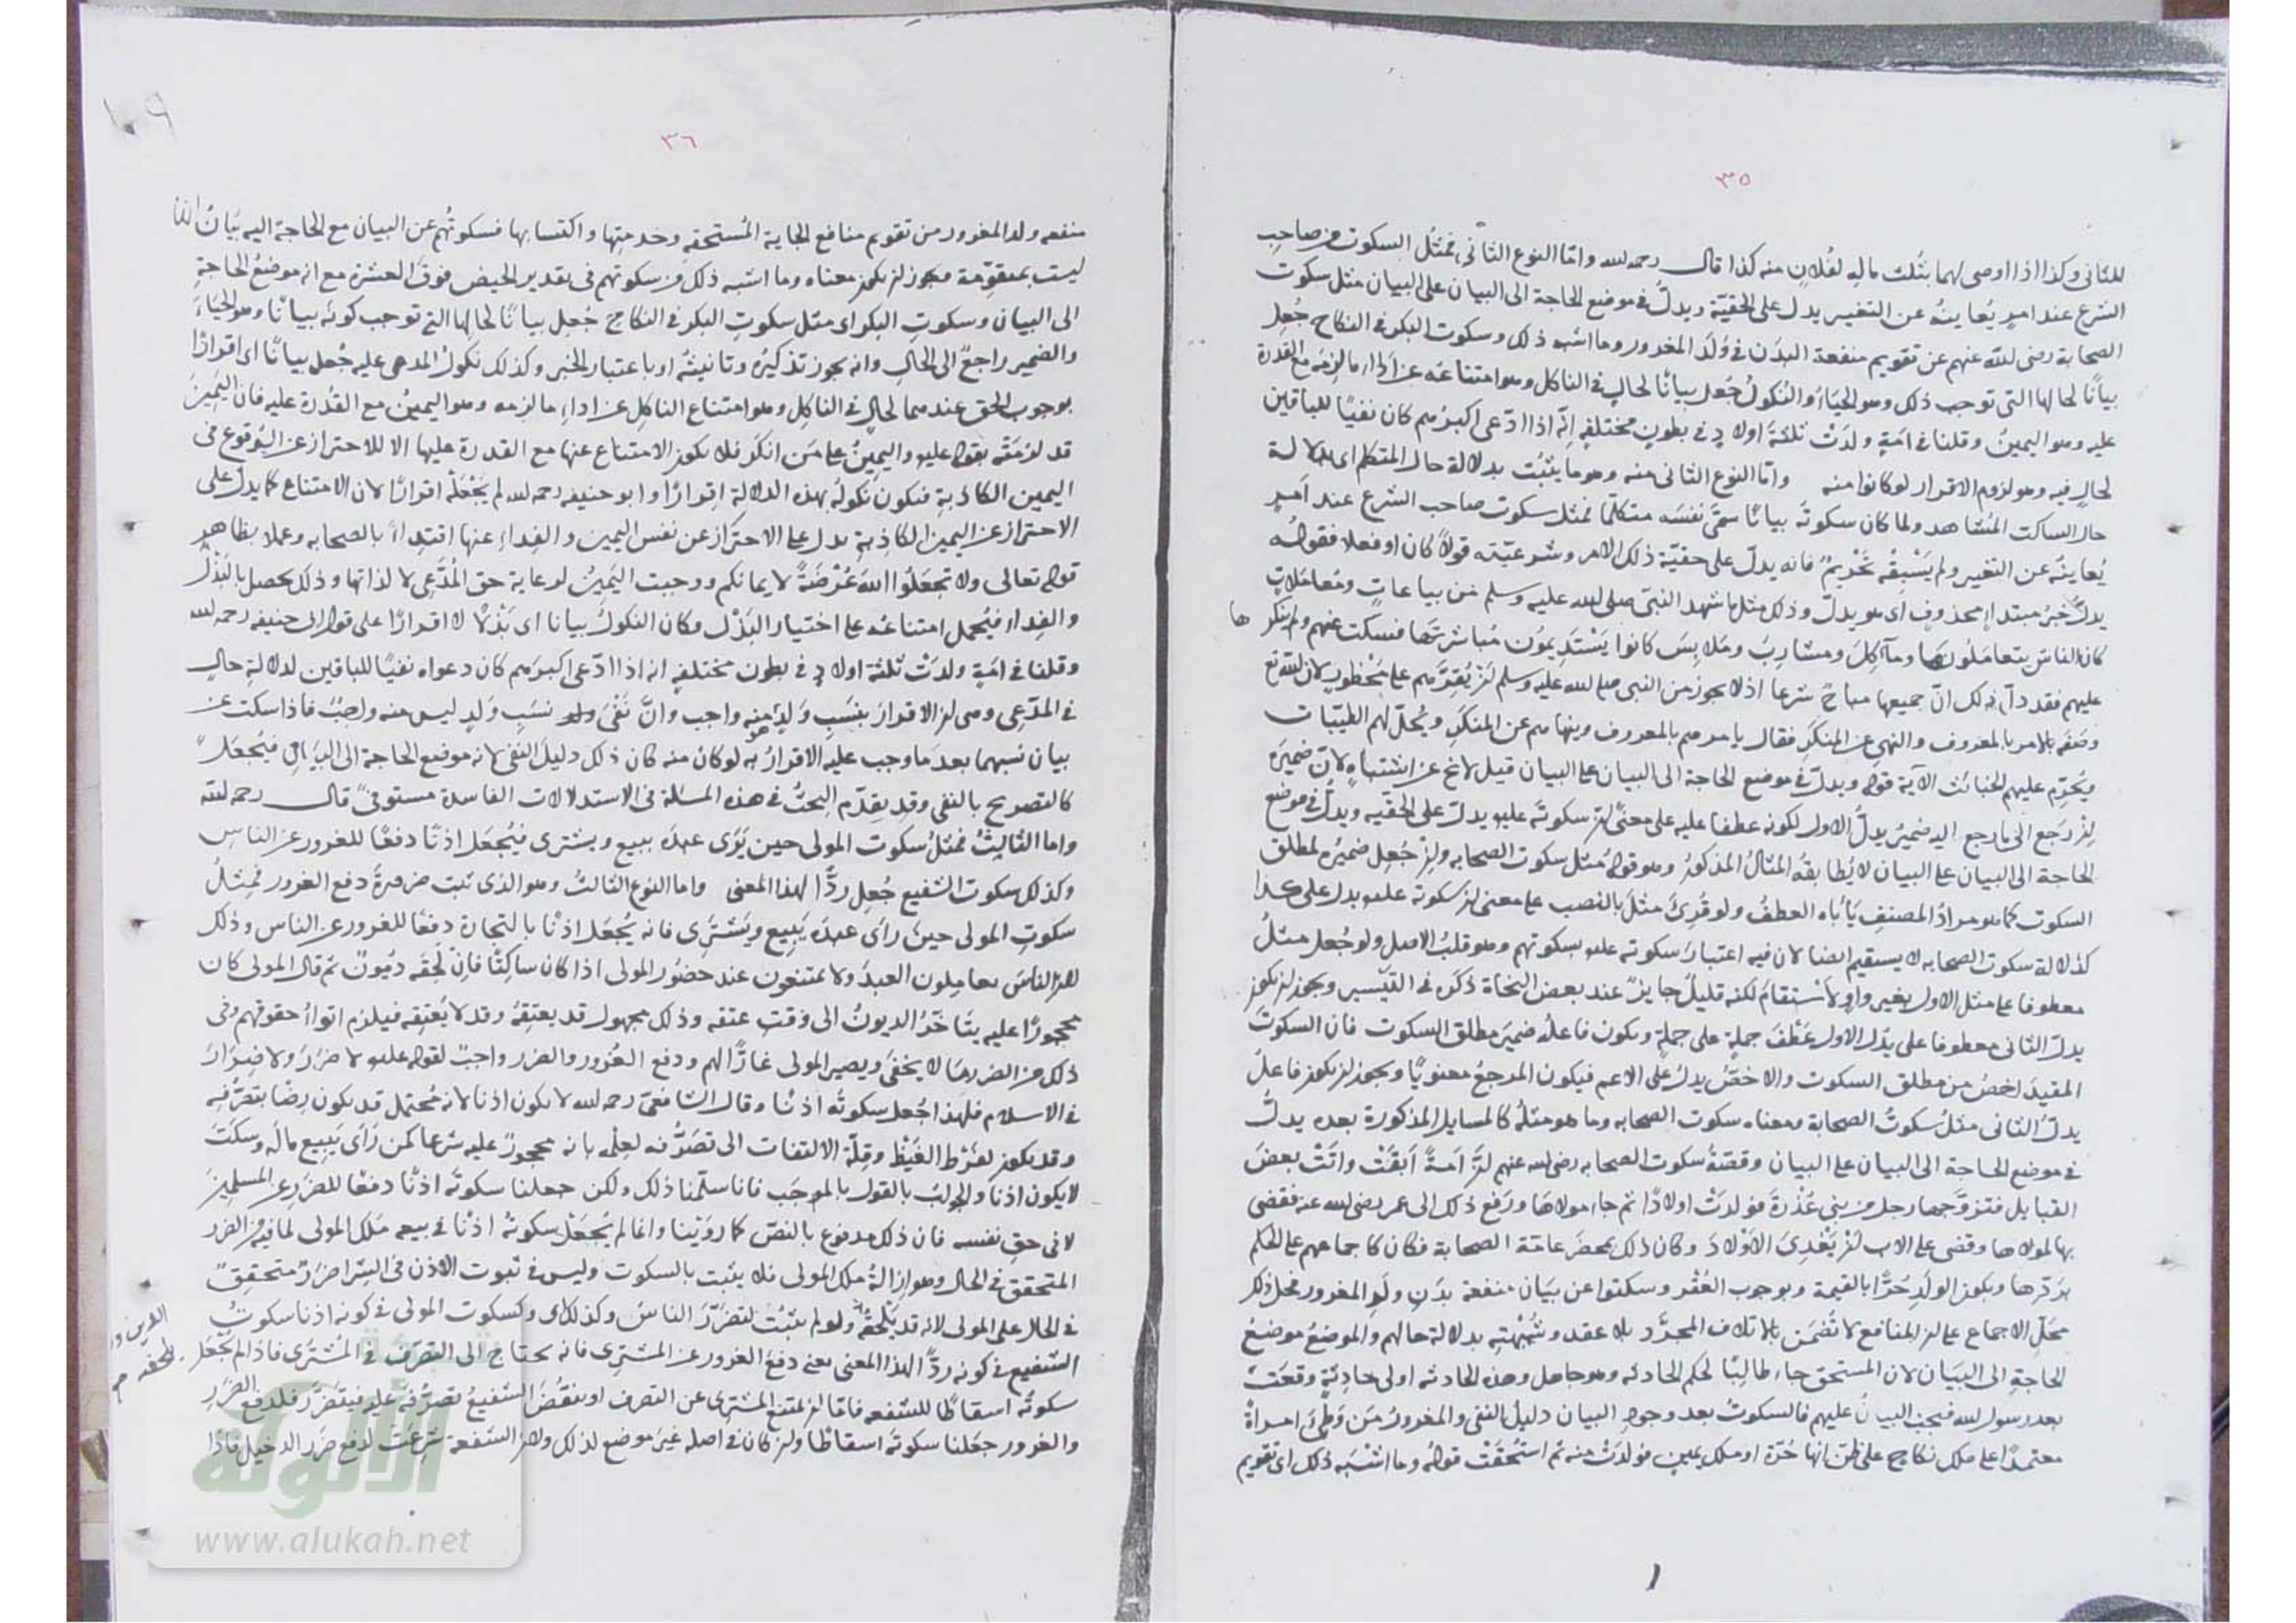 ٣٥
للثانى وكذا اذا اوصى لهما بثلث ماله لفلان منه كذا قال رحمه الله واما النوع الثانى فمثل السكوت من صاحب
الشرع عند امر يُعاينه عن التغيير يدل على الحقيّة ويدلّ فى موضع الحاجة الى البيان على البيان مثل سكوت
الصحابة رضى الله عنهم عن تقويم منفعة البدن فى ولد المغرور وما اشبه ذلك وسكوت البكر فى النكاح جُعل
بيانًا لحالها التى توجب ذلك وهو الحياءُ والنكولُ جُعل بيانًا لحال فى الناكل وهو امتناعه عن اداء ما لزمه مع القدرة
عليه وهو اليمينُ وقلنا فى امَةٍ ولدَتْ ثلثةَ اولادٍ فى بطونٍ مختلفةٍ انّه اذا ادّعى اكبرَهم كان نفيًا للباقين
لحالٍ فيه وهو لزوم الاقرار لو كانوا منه واما النوع الثانى منه وهو ما يثبُت بدلالة حال المتكلم اى بدلالة
حال الساكت المُشاهد ولما كان سكوته بيانًا سمّى نفسَه متكلّمًا فمثل سكوت صاحب الشرع عند امرٍ
يُعاينُه عن التغيير ولم يَسْبِقْه تَحْريمٌ فانه يدلّ على حقيّة ذلك الامر وشرعيّته قولاً كان او فعلا فقوله
يدلّ خبرُ مبتداءٍ محذوفٍ اى هو يدلّ وذلك مثل ما شهد النبىّ صلى الله عليه وسلم من بياعاتٍ ومُعاملاتٍ
كان الناس يتعاملونها ومآكِلَ ومشارِبَ ومَلابِسَ كانوا يَسْتَدِيمُون مُباشرتها فسكت عنهم ولم ينكر ها
عليهم فقد دلّ ذلك انّ جميعها مباحٌ شرعا اذ لا يجوز من النبى صلى الله عليه وسلم ان يُقِرَّهم على مَحْظورٍ لان الله تع
وصَفَه بالامر بالمعروف والنهى عن المنكَرِ فقال يامرهم بالمعروف وينهاهم عن المنكَرِ ويُحِلّ لهم الطيّبات
ويُحَرّم عليهم الخبائث الآية قوله ويدلّ فى موضع الحاجة الى البيان على البيان قيل لا يخ عن اشتباهٍ لانّ ضميرَه
ان رَجع الى ما رجع اليه ضميرُ يدلُّ الاول لكونه عطفا عليه على معنى ان سكوتَه عليه يدلّ على الحقّيه ويدلُّ فى موضع
الحاجة الى البيان على البيان لا يُطابقُه المثالُ المذكورُ وهو قولهُ مثل سكوت الصحابه وان جُعِل ضميرُه لمطلق
السكوت كما هو مرادُ المصنفِ يَأباه العطفُ ولو قُرِئَ مثلَ بالنصب على معنى ان سكوته عليه يدل على هذا
كدلالة سكوت الصحابه لا يستقيم ايضا لان فيه اعتبارَ سكوته عليه بسكوتهم وهو قلبُ الاصل ولو جُعل مثلُ
معطوفا على مثل الاول بغير واوٍ لاستقامَ لكنه قليلٌ جايزٌ عند بعض النحاة ذكَره فى التيسير ويجوز ان يكون
يدلّ الثانى معطوفا على يدُلّ الاول عَطْفَ جملةٍ على جملةٍ ويكون فاعلهُ ضميرَ مطلق السكوت فان السكوتَ
المقيدَ اخصُّ من مطلق السكوت والاخصُّ يدلّ على الاعم فيكون المرجعُ معنويًّا ويجوز ان يكون فاعلُ
يدلّ الثانى مثلُ سكوتُ الصحابة ومعناه سكوت الصحابه وما هو مثلُه كالمسايل المذكورة بعده يدلُّ
فى موضع الحاجة الى البيان على البيان وقصّةُ سكوت الصحابه رضى الله عنهم انّ اَمةً اَبقَتْ واتَتْ بعضَ
القبايل فتزوَّجها رجل من بنى عُذْرةَ فولدَتْ اولادًا ثم جاء مولاها ورَفع ذلك الى عمر رضى الله عنه فقضى
بها لمولاها وقضى على الاب ان يَفْدِىَ الاَوْلادَ وكان ذلك بمحضرَ عامّة الصحابة فكان كاجماعهم على الحكم
بردّها ويكون الولدِ حُرًّا بالقيمة وبوجوب العُقْر وسكتوا عن بيَان منفعة بدَنِ ولَدِ المغرور فحل ذلك
محَلّ الاجماع على ان المنافع لا تُضمَن بالاتلاف المجرَّد بلا عقد وشُبْهتِه بدلالة حالهم والموضعُ موضعُ
الحاجةِ الى البيَان لان المستحق جاء طالِبًا لحكم الحادثه وهو جاهل وهذه الحادثه اولى حادِثةٍ وقعَت
بعد رسول الله فيجب البيانُ عليهم فالسكوتُ بعد وجوبِ البيان دليلُ النفى والمغرورُ مَن وَطِئَ امراةً
معتمدًا على ملك نكاح على ظنّ انها حُرّة او ملك يمين فولدَتْ منه ثم استُحقَتْ قوله وما اشْبَه ذلك اى تقويم
٣٦
١٠٩
منفعه ولد المغرور من تقويم منافع الجاية المُستحقه وخدمتِها واكتسابها فسكوتُهم عن البيان مع الحاجة اليه بيَان
ليست بمتقوِّمة ويجوز ان يكون معناه وما اشبه ذلك من سكوتهم فى تقدير الحيض فوقَ العشرة مع انه موضعُ الحاجةِ
الى البيان وسكوتِ البكر اى مثل سكوتِ البكر فى النكاح جُعِل بيانًا لحالها التى توجب كونَه بيانًا وهو الحَياءُ
والضمير راجعٌ الى الحال وانه يجوز تذكيرُه وتانيثُه او باعتبار الخبر وكذلك نكولُ المدعى عليه جُعل بيانًا اى اقرارًا
بوجوب الحق عندهما لحالٍ فى الناكِلِ وهو امتناع الناكِل عن اداءِ ما لزمه وهو اليمينُ مع القُدرة عليه فان اليَمِينَ
قد لزمَتْه بقوله عليه واليمينُ على مَن انكَر فلا يكون الامتناع عنها مع القدرة عليها الا للاحتراز عن الوُقوع فى
اليمين الكاذبةِ فيكون نكولُه بهذه الدلالةِ اِقرارًا وابو حنيفه رحمه الله لم يَجْعَلْه اقرارًا لان الامتناع كما يدلّ على
الاحتراز عن اليمين الكاذِبة يدل على الاحتراز عن نفس اليمين والفِداءِ عنها اقتداءً بالصحابه وعملا بظاهر
قوله تعالى ولا تجعَلُوا اللهَ عُرْضَةً لايمانكم ووجبت اليَمينُ لرعاية حق المُدَّعِى لا لذاتها وذلك يحصل بالبَذْل
والفِداء فيُحمل امتناعُه على اختيار البَذْل فكان النكولُ بيانا اى بَذْلاً لا اقرارًا على قول ابى حنيفه رحمه الله
وقلنا فى امَةٍ ولدَتْ ثلثة اولادٍ فى بطون مختلفةٍ انه اذا ادّعى اكبرَهم كان دعواه نفيًا للباقين لدلالةِ حالٍ
فى المدّعِى وهى ان الاقرارَ بنسَبِ وَلَدٍ هو منه واجب وانَّ نَفْىَ نسَبِ وَلَدٍ ليس منه واجبٌ فاذا سكت عن
بيان نسبهما بعدَ ما وجب عليه الاقرارُ به لو كان منه كان ذلك دليلَ النفى لانه موضع الحاجة الى البيَان فيُجعَل
كالتصريح بالنفى وقد تقدّم البحثُ فى هذه المسئلة فى الاستدلالات الفاسدة مستوفىً قال رحمه الله
واما الثالثُ فمثلُ سكوت المولى حين يَرَى عبدَه يبيع ويشترى فيُجعَل اذنًا دفعًا للغرور عن الناسِ
وكذلك سكوت الشفيع جُعِل ردًّا لهذا المعنى واما النوع الثالثُ وهو الذى ثبت ضرورةَ دفع الغرور فمِثلُ
سكوتِ المولى حين رأى عبدَه يَبيع ويَشتَرِى فانه يُجعَل اذنًا بالتجارة دفعًا للغرور عن الناس وذلك
لان الناسَ يعامِلون العبدَ ولا يمتنعون عند حضُور المولى اذا كان ساكِتًا فاِن لَحِقَه دُيونٌ ثم قال المولى كان
محجورًا عليه يتَاخّرُ الديونُ الى وَقتِ عتقه وذلك مجهول قد يعتِقهُ وقد لا يُعتِقه فيلزم اتواءُ حقوقهم وفى
ذلك من الضرر ما لا يخفَى ويصير المولى غارًّا لهم ودفع الغُرور والضرر واجبٌ لقوله عليه لا ضرَرَ ولا ضِرَارَ
فى الاسلام فلهذا جُعل سكوتُه اذنًا وقال الشافعىّ رحمه الله لا يكون اذنا لانه مُحتمل قد يكون رِضًا بتصَرُّفه
وقد يكون لفَرْط الغَيْظِ وقِلّة الالتفات الى تصَرُّفه لعِلْمه بانه محجورٌ عليه شرعا كمن رَأى يَبِيع مالَه وسكتَ
لا يكون اذنا والجواب بالقول بالموجَب فانا سلّمنا ذلك ولكن جعلنا سكوتَه اذنًا دفعًا للضرَرِ عن المسلمِينَ
لا فى حقِ نفسه فان ذلك مدفوع بالنصّ كما رَوَيْنا وانما لم يُجعَلْ سكوتُه اذْنا فى بيعه مَلكَ المولى لما فيه من الضرر
المتحقق فى الحال وهو اِزالةُ ملك المولى فلا يثبت بالسكوت وليس فى ثبوت الاذن فى الشِرا ضرَرٌ متحقِّقٌ
فى الحال على المولى لانه قد يَلْحقُه ولو لم يثبُت لتضرّرَ الناسُ وكذلك اى وكسكوت المولى فى كونه اذنا سكوتُ
الشفيع فى كونه ردًّا لهذا المعنى يعنى دفعَ الغرور عن المشتَرِى فانه يحتاج الى التصرّف فى المُشتَرَى فاذا لم يُجعَل
سكوتُه اسقاطًا للشفعه فاما ان يمتنع المشترى عن التصرف او ينقُضَ الشفيعُ تصرُّفَه عليه فيتضَرَّر فلدفع الضرَرِ
والغرور جعَلنا سكوتَه اسقاطًا وان كان فى اصله غيرَ موضع لذلك ولان الشفعة شُرعَت لدفع ضرَر الدخيل فاذا
١
الألوكة
www.alukah.net